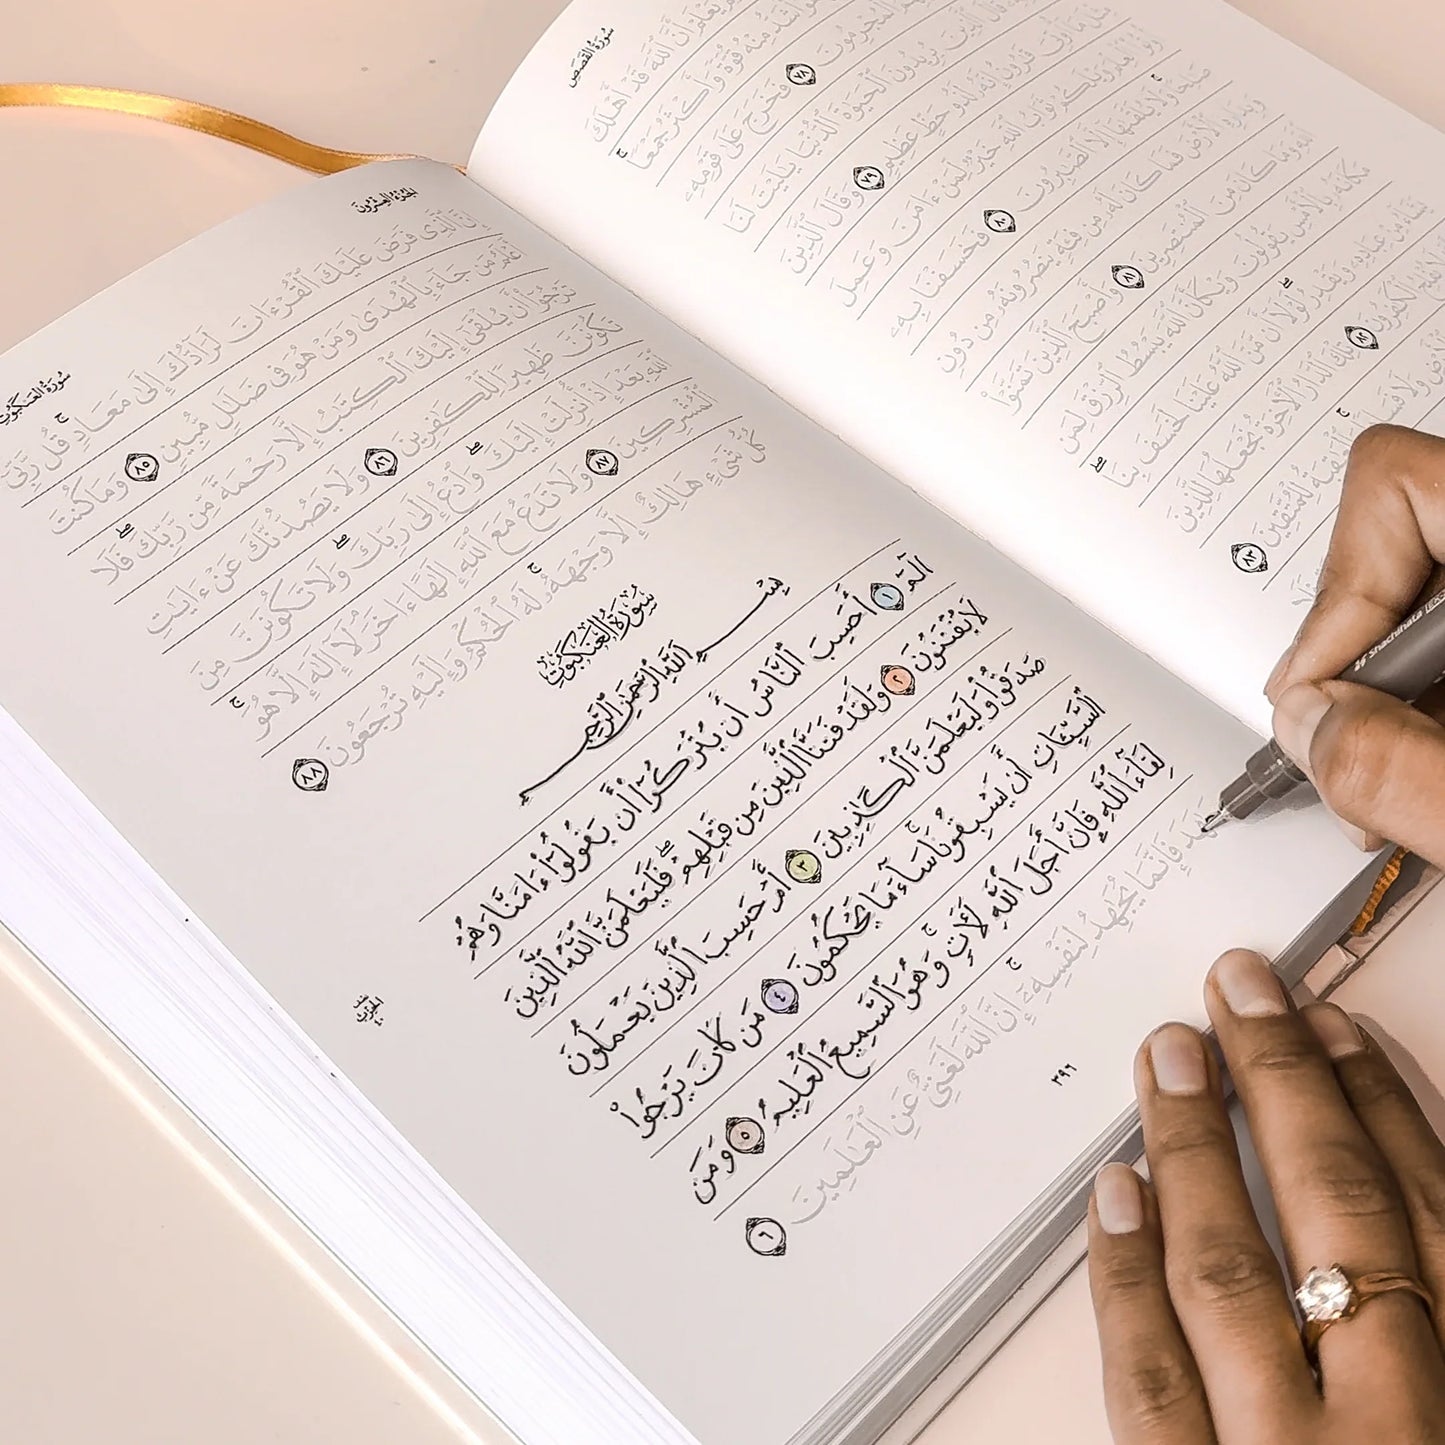 سُورَةُ القَصَصِ
يَعْلَمْ أَنَّ ٱللَّهَ قَدْ أَهْلَكَ
أَشَدُّ مِنْهُ قُوَّةً وَأَكْثَرُ جَمْعًا ۚ
ٱلْمُجْرِمُونَ ٧٨ فَخَرَجَ عَلَىٰ قَوْمِهِۦ
قَالَ ٱلَّذِينَ يُرِيدُونَ ٱلْحَيَوٰةَ ٱلدُّنْيَا يَٰلَيْتَ لَنَا
مِثْلَ مَآ أُوتِىَ قَٰرُونُ إِنَّهُۥ لَذُو حَظٍّ عَظِيمٍ ٧٩ وَقَالَ ٱلَّذِينَ
أُوتُوا۟ ٱلْعِلْمَ وَيْلَكُمْ ثَوَابُ ٱللَّهِ خَيْرٌ لِّمَنْ ءَامَنَ وَعَمِلَ
صَٰلِحًا ۚ وَلَا يُلَقَّىٰهَآ إِلَّا ٱلصَّٰبِرُونَ ٨٠ فَخَسَفْنَا بِهِۦ
وَبِدَارِهِ ٱلْأَرْضَ فَمَا كَانَ لَهُۥ مِن فِئَةٍ يَنصُرُونَهُۥ مِن دُونِ
ٱللَّهِ وَمَا كَانَ مِنَ ٱلْمُنتَصِرِينَ ٨١ وَأَصْبَحَ ٱلَّذِينَ تَمَنَّوْا۟
مَكَانَهُۥ بِٱلْأَمْسِ يَقُولُونَ وَيْكَأَنَّ ٱللَّهَ يَبْسُطُ ٱلرِّزْقَ لِمَن
يَشَآءُ مِنْ عِبَادِهِۦ وَيَقْدِرُ ۖ لَوْلَآ أَن مَّنَّ ٱللَّهُ عَلَيْنَا لَخَسَفَ بِنَا ۖ
لَا يُفْلِحُ ٱلْكَٰفِرُونَ ٨٢ تِلْكَ ٱلدَّارُ ٱلْءَاخِرَةُ نَجْعَلُهَا لِلَّذِينَ
ٱلْأَرْضِ وَلَا فَسَادًا ۚ وَٱلْعَٰقِبَةُ لِلْمُتَّقِينَ ٨٣
فَلَا
الجُزْءُ العِشْرُونَ
سُورَةُ العَنكَبُوتِ
إِنَّ ٱلَّذِى فَرَضَ عَلَيْكَ ٱلْقُرْءَانَ لَرَآدُّكَ إِلَىٰ مَعَادٍ ۚ قُل رَّبِّىٓ
أَعْلَمُ مَن جَآءَ بِٱلْهُدَىٰ وَمَنْ هُوَ فِى ضَلَٰلٍ مُّبِينٍ ٨٥ وَمَا كُنتَ
تَرْجُوٓا۟ أَن يُلْقَىٰٓ إِلَيْكَ ٱلْكِتَٰبُ إِلَّا رَحْمَةً مِّن رَّبِّكَ ۖ فَلَا
تَكُونَنَّ ظَهِيرًا لِّلْكَٰفِرِينَ ٨٦ وَلَا يَصُدُّنَّكَ عَنْ ءَايَٰتِ
ٱللَّهِ بَعْدَ إِذْ أُنزِلَتْ إِلَيْكَ ۖ وَٱدْعُ إِلَىٰ رَبِّكَ ۖ وَلَا تَكُونَنَّ مِنَ
ٱلْمُشْرِكِينَ ٨٧ وَلَا تَدْعُ مَعَ ٱللَّهِ إِلَٰهًا ءَاخَرَ ۘ لَآ إِلَٰهَ إِلَّا هُوَ ۚ
كُلُّ شَىْءٍ هَالِكٌ إِلَّا وَجْهَهُۥ ۚ لَهُ ٱلْحُكْمُ وَإِلَيْهِ تُرْجَعُونَ ٨٨
سُورَةُ العَنكَبُوتِ
بِسْمِ ٱللَّهِ ٱلرَّحْمَٰنِ ٱلرَّحِيمِ
الٓمٓ ١ أَحَسِبَ ٱلنَّاسُ أَن يُتْرَكُوٓا۟ أَن يَقُولُوٓا۟ ءَامَنَّا وَهُمْ
لَا يُفْتَنُونَ ٢ وَلَقَدْ فَتَنَّا ٱلَّذِينَ مِن قَبْلِهِمْ ۖ فَلَيَعْلَمَنَّ ٱللَّهُ ٱلَّذِينَ
صَدَقُوا۟ وَلَيَعْلَمَنَّ ٱلْكَٰذِبِينَ ٣ أَمْ حَسِبَ ٱلَّذِينَ يَعْمَلُونَ
ٱلسَّيِّـَٔاتِ أَن يَسْبِقُونَا ۚ سَآءَ مَا يَحْكُمُونَ ٤ مَن كَانَ يَرْجُوا۟
لِقَآءَ ٱللَّهِ فَإِنَّ أَجَلَ ٱللَّهِ لَءَاتٍ ۚ وَهُوَ ٱلسَّمِيعُ ٱلْعَلِيمُ ٥ وَمَن
جَٰهَدَ فَإِنَّمَا يُجَٰهِدُ لِنَفْسِهِۦٓ ۚ إِنَّ ٱللَّهَ لَغَنِىٌّ عَنِ ٱلْعَٰلَمِينَ ٦
الحزب ٤٠
٣٩٦
Shachihata